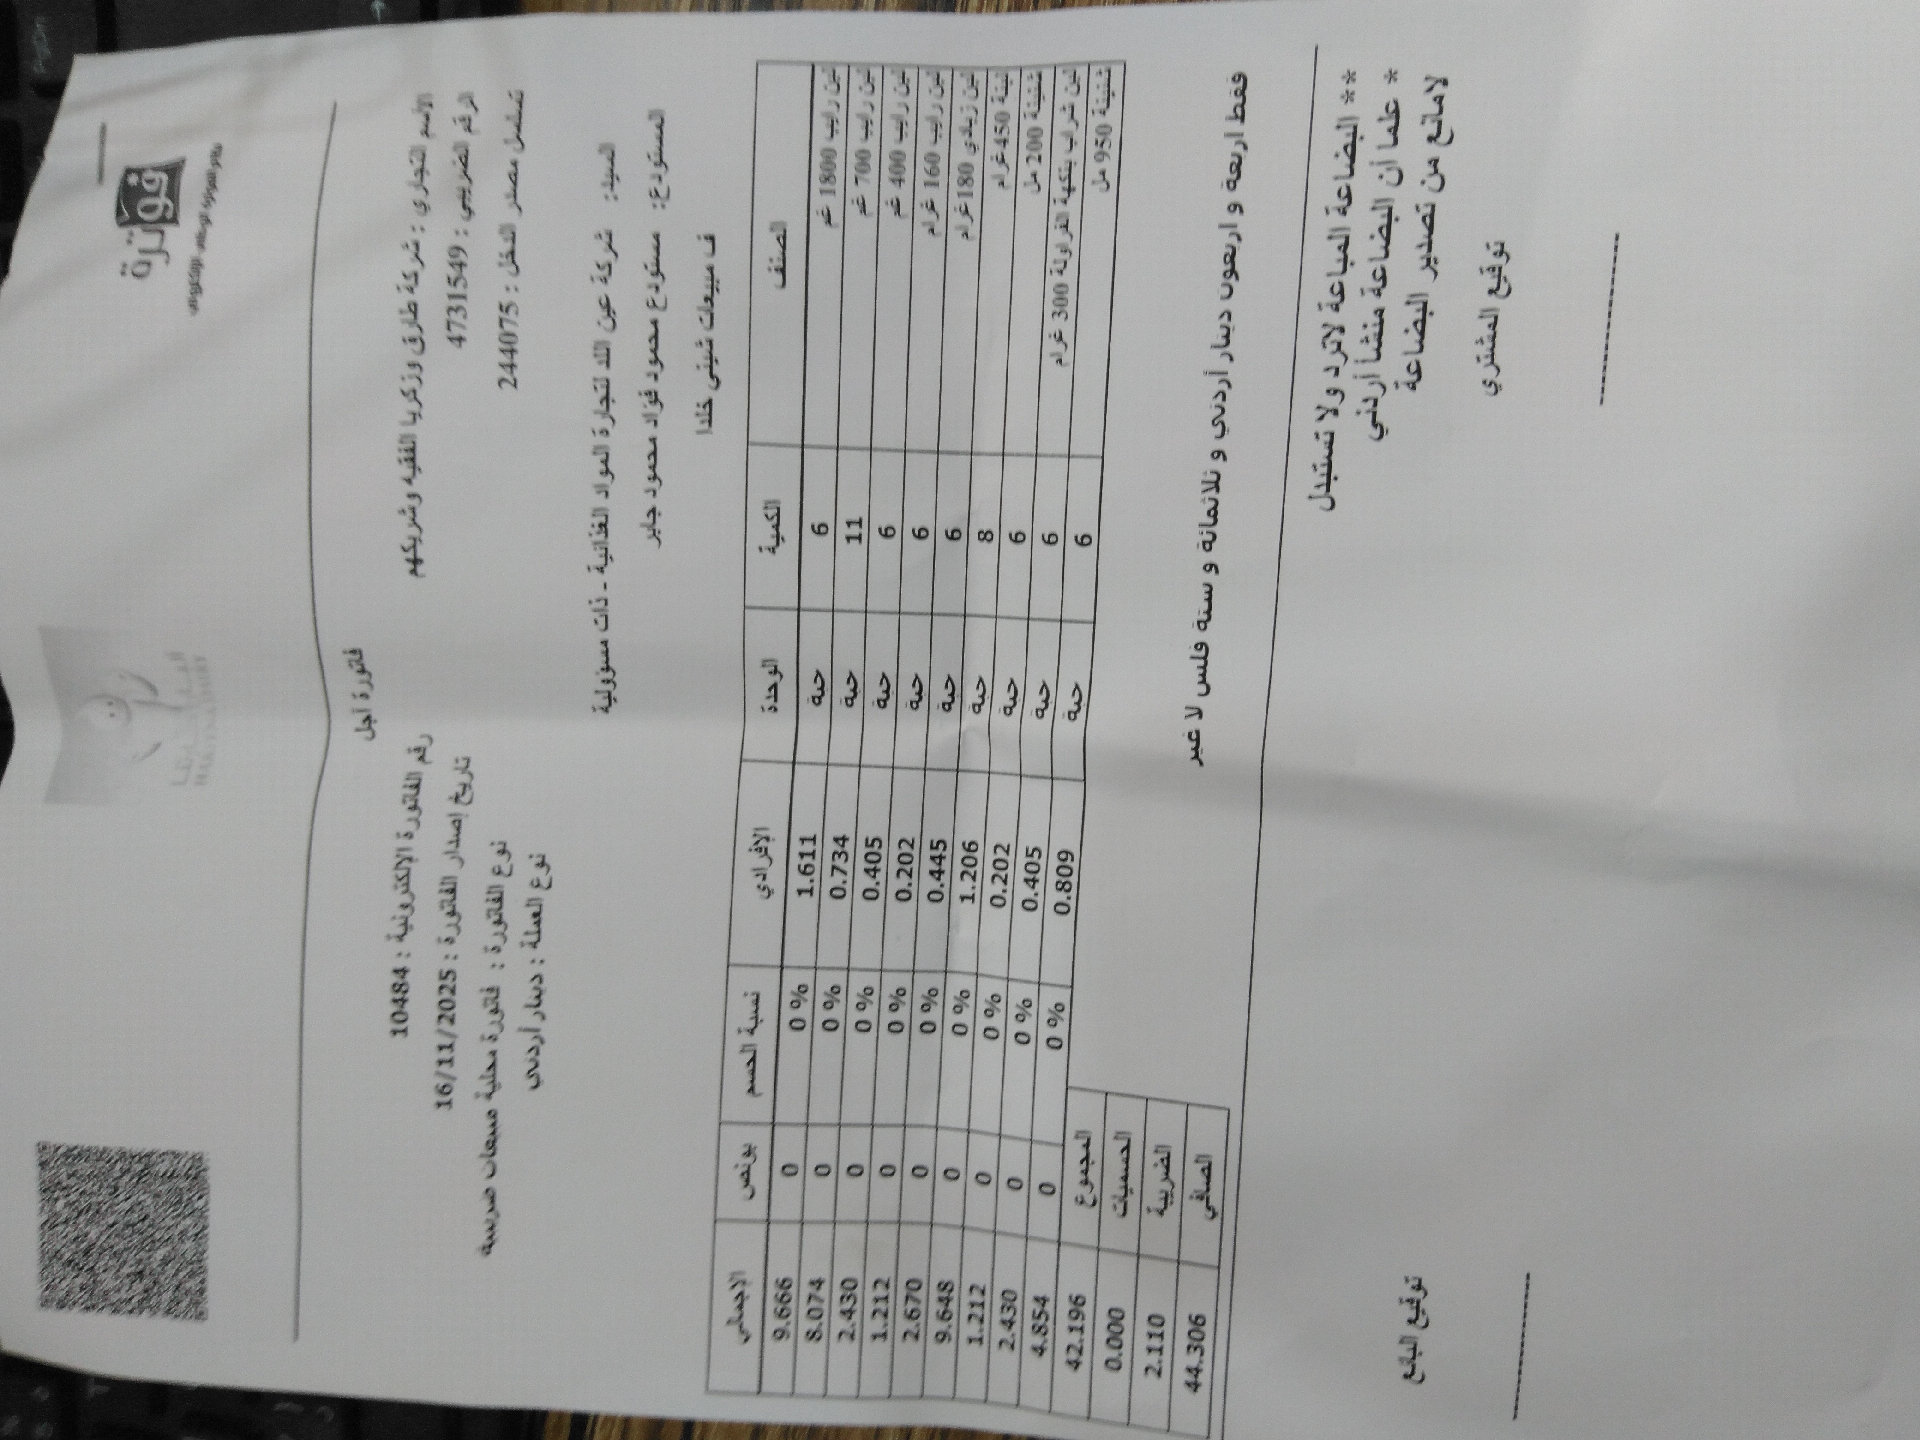 فوترة
نظام الفوترة الوطني الإلكتروني
HAMMOUDEH
فاتورة آجل
الاسم التجاري : شركة طارق وزكريا الفقيه وشريكهم
رقم الفاتورة الإلكترونية : 10484
الرقم الضريبي : 4731549
تاريخ إصدار الفاتورة : 16/11/2025
تسلسل مصدر الدخل : 244075
نوع الفاتورة : فاتورة محلية مبيعات ضريبية
نوع العملة : دينار أردني
السيد: شركة عين اللد لتجارة المواد الغذائية - ذات مسؤولية
المستودع: مستودع محمود فؤاد محمود جابر
ف مبيعات شيني خلدا
الصنف الكمية الوحدة الإفرادي نسبة الحسم بونص الإجمالي
لبن رايب 1800 غم 6 حبة 1.611 0 % 0 9.666
لبن رايب 700 غم 11 حبة 0.734 0 % 0 8.074
لبن رايب 400 غم 6 حبة 0.405 0 % 0 2.430
لبن رايب 160 غرام 6 حبة 0.202 0 % 0 1.212
لبن زبادي 180غرام 6 حبة 0.445 0 % 0 2.670
لبنة 450غرام 8 حبة 1.206 0 % 0 9.648
شنينة 200 مل 6 حبة 0.202 0 % 0 1.212
لبن شراب بنكهة الفراولة 300 غرام 6 حبة 0.405 0 % 0 2.430
شنينة 950 مل 6 حبة 0.809 0 % 0 4.854
المجموع 42.196
الحسميات 0.000
الضريبة 2.110
الصافي 44.306
فقط اربعة و اربعون دينار أردني و ثلاثمائة و ستة فلس لا غير
** البضاعة المباعة لاترد ولا تستبدل
* علما أن البضاعة منشأ أردني
لامانع من تصدير البضاعة
توقيع المشتري
توقيع البائع